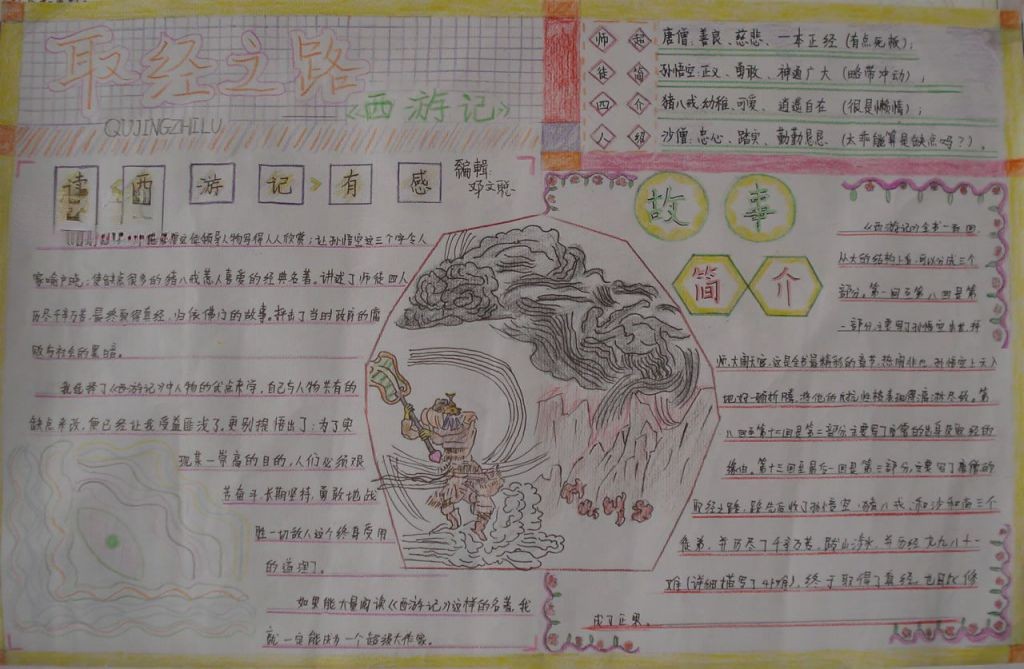 取经之路
《西游记》
QUJINGZHILU
师徒四人
超简介绍
唐僧:善良、慈悲、一本正经(有点死板);
孙悟空:正义、勇敢、神通广大(略带冲动);
猪八戒:幼稚、可爱、逍遥自在(很是懒惰);
沙僧:忠心、踏实、勤勤恳恳、(太乖能算是缺点吗?)。
读西游记有感
编辑:
邓文聪
人物写得人人欣赏;让孙悟空这三个字令人
家喻户晓;使缺点很多的猪八戒惹人喜爱的经典名著。讲述了师徒四人
历尽千辛万苦,最终取得真经,归依佛门的故事。折出了当时政府的腐
败与社会的黑暗。
我选择了《西游记》中人物的优点来学,自己与人物共有的
缺点来改,便已经让我受益匪浅了。更别提悟出了:为了实
现某一崇高的目的,人们必须艰
苦奋斗、长期坚持、勇敢地战
胜一切敌人这个终身受用
的道理了。
如果能大量阅读《西游记》这样的名著,我
就一定能成为一个超级大作家。
故事
简介
《西游记》全书一百回,
从大的结构上看,可以分成三个
部分。第一回至第八回是第
一部分,主要写了孙悟空出世、拜
师、大闹天宫,这是全书最精彩的章节,热闹非凡,孙悟空上天入
地,好一顿折腾,将他的反抗性格表现得淋漓尽致。第
八回至第十二回是第二部分,主要写了唐僧的出身及取经的
缘由。第十三回至最后一回是第三部分,主要写了唐僧的
取经之路,路先后收了孙悟空、猪八戒、和沙和尚三个
徒弟,并历尽了千辛万苦,跋山涉水,并历经九九八十一
难(详细描写了41难),终于取得了真经,也因此修
成了正果。